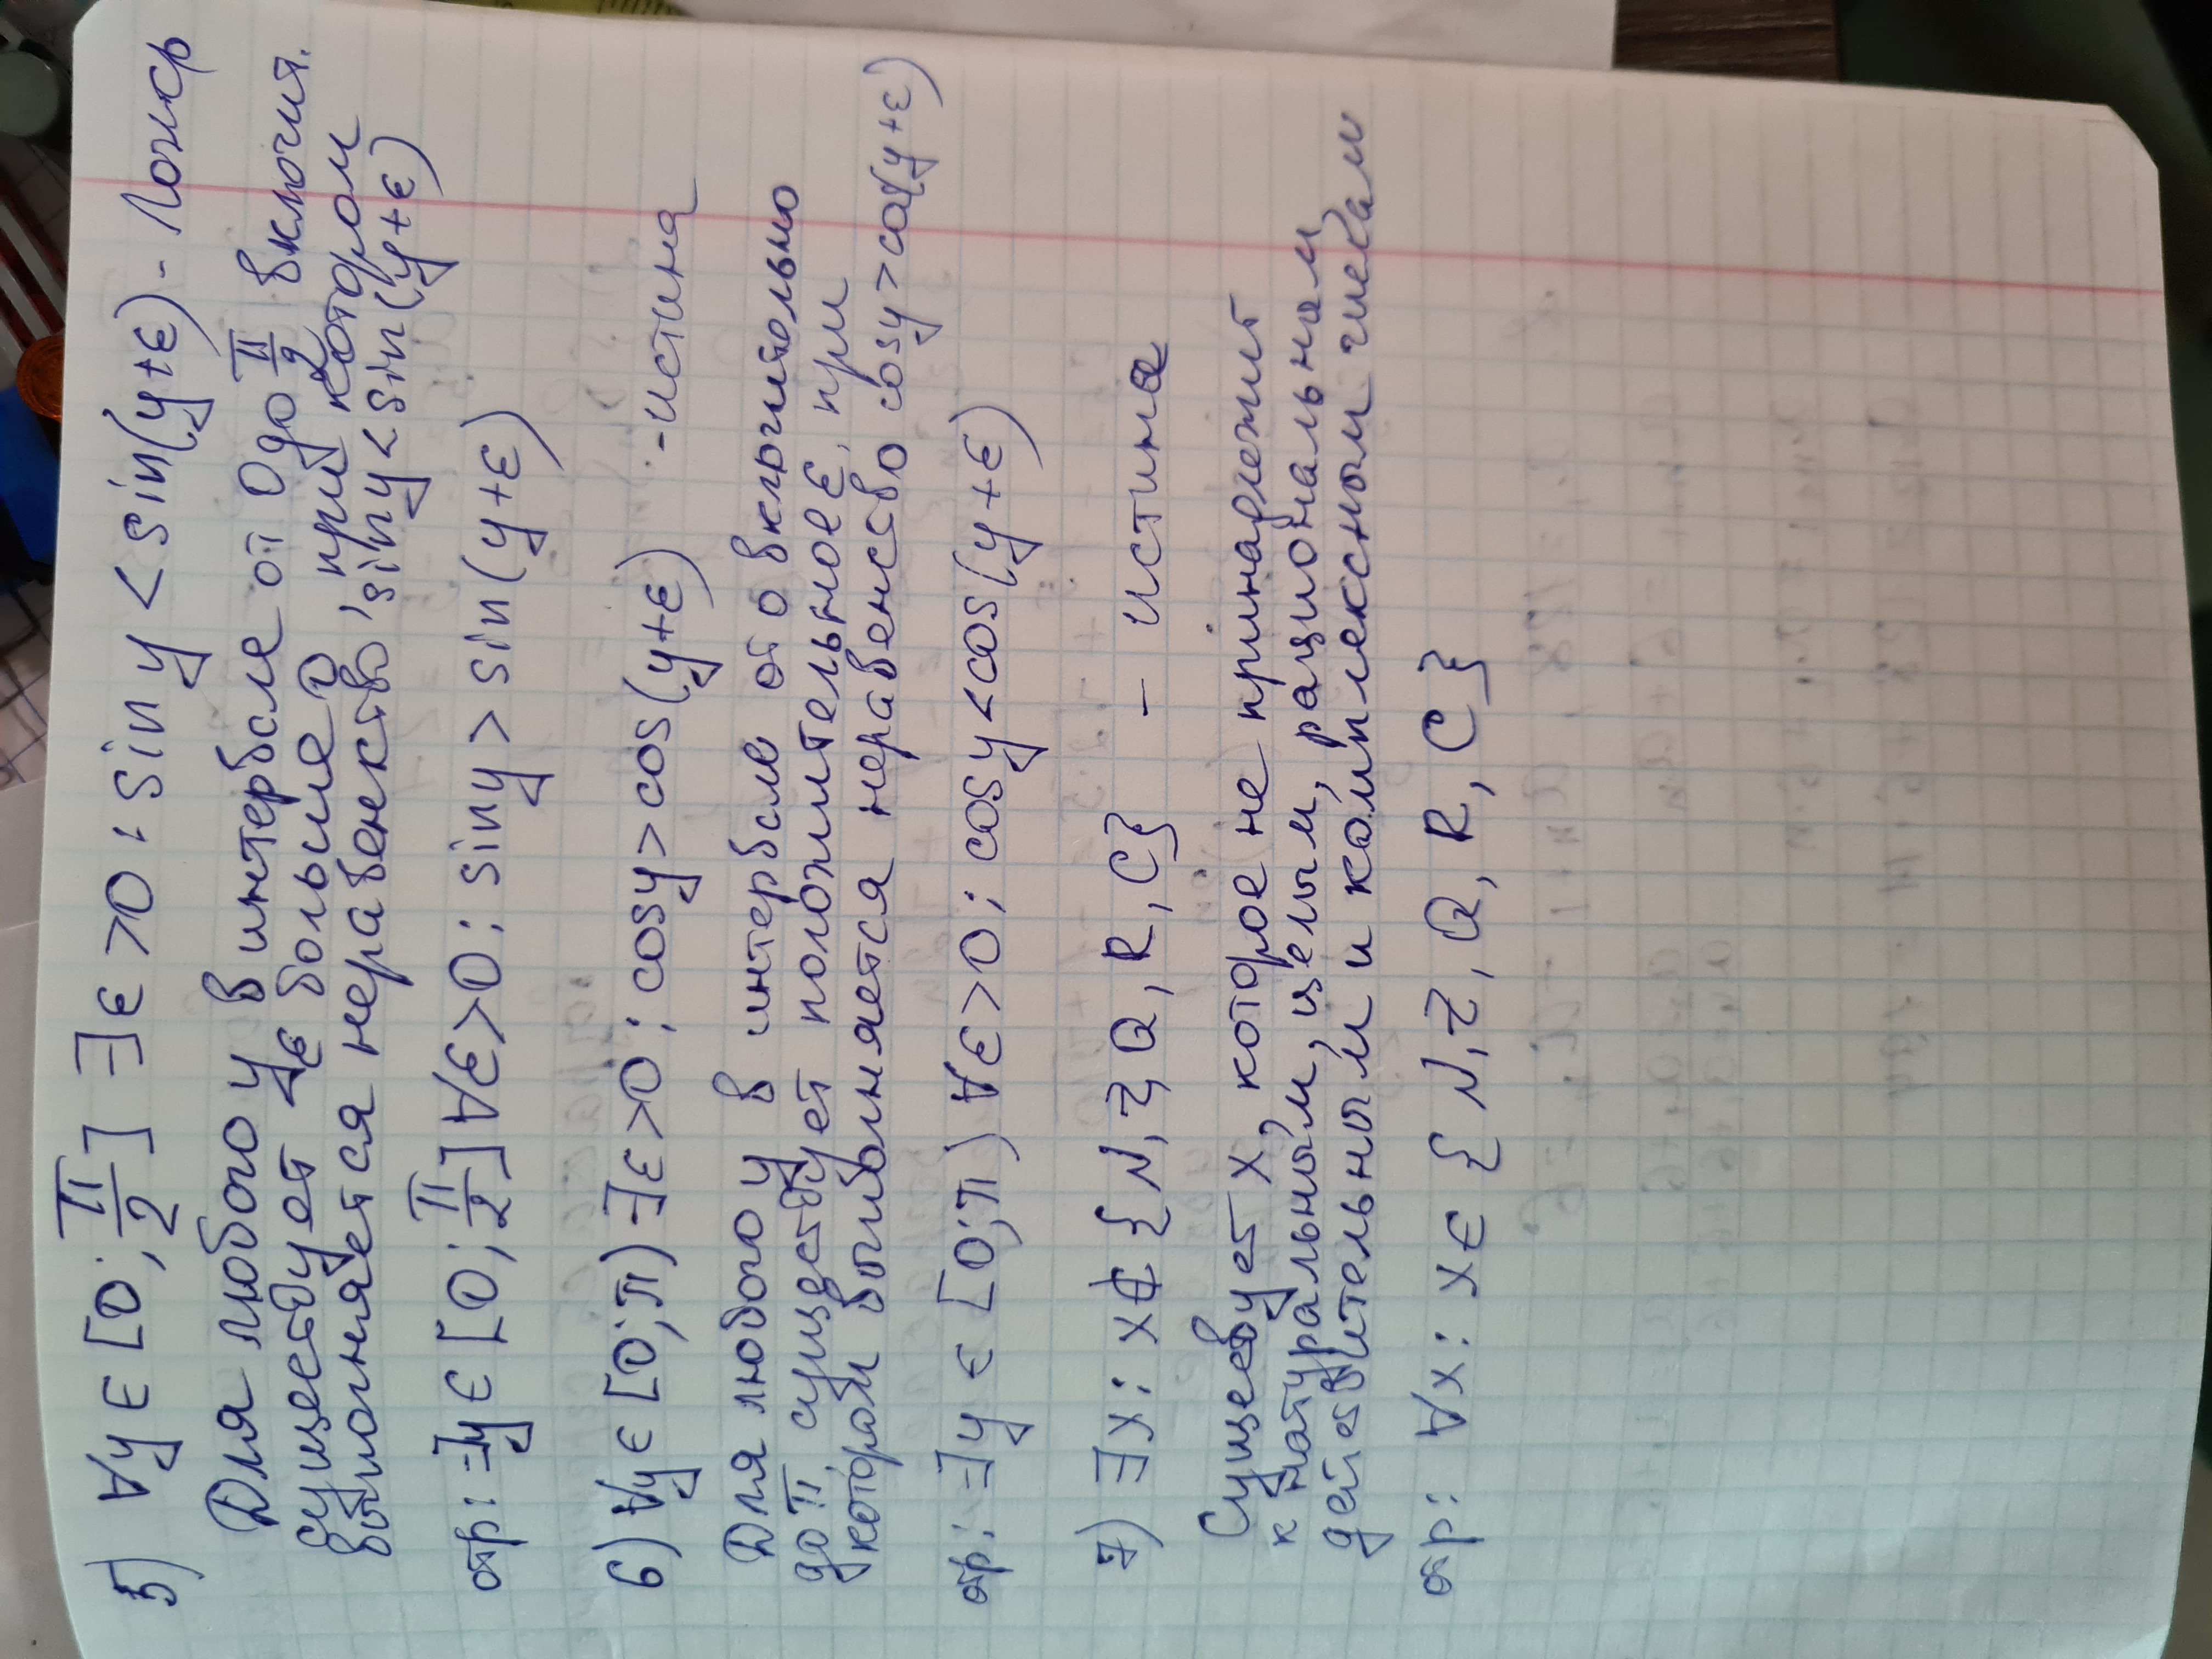 5) ∀y ∈ [0; π/2] ∃ε > 0 : sin y < sin(y+ε) - Ложь
Для любого y в интервале от 0 до π/2 включит.
существует ε больше 0, при котором
выполняется неравенство sin y < sin(y+ε)
отр: ∃y ∈ [0; π/2] ∀ε > 0 : sin y > sin(y+ε)
6) ∀y ∈ [0; π) ∃ε > 0 ; cos y > cos(y+ε) - истина
Для любого y в интервале от 0 включительно
до π, существует положительное ε, при
котором выполняется неравенство cos y > cos(y+ε)
отр: ∃y ∈ [0; π) ∀ε > 0 ; cos y < cos(y+ε)
7) ∃x : x ∉ {N, Z, Q, R, C} - истина
Существует x, которое не принадлежит
к натуральным, целым, рациональным,
действительным и комплексным числам
отр: ∀x : x ∈ {N, Z, Q, R, C}